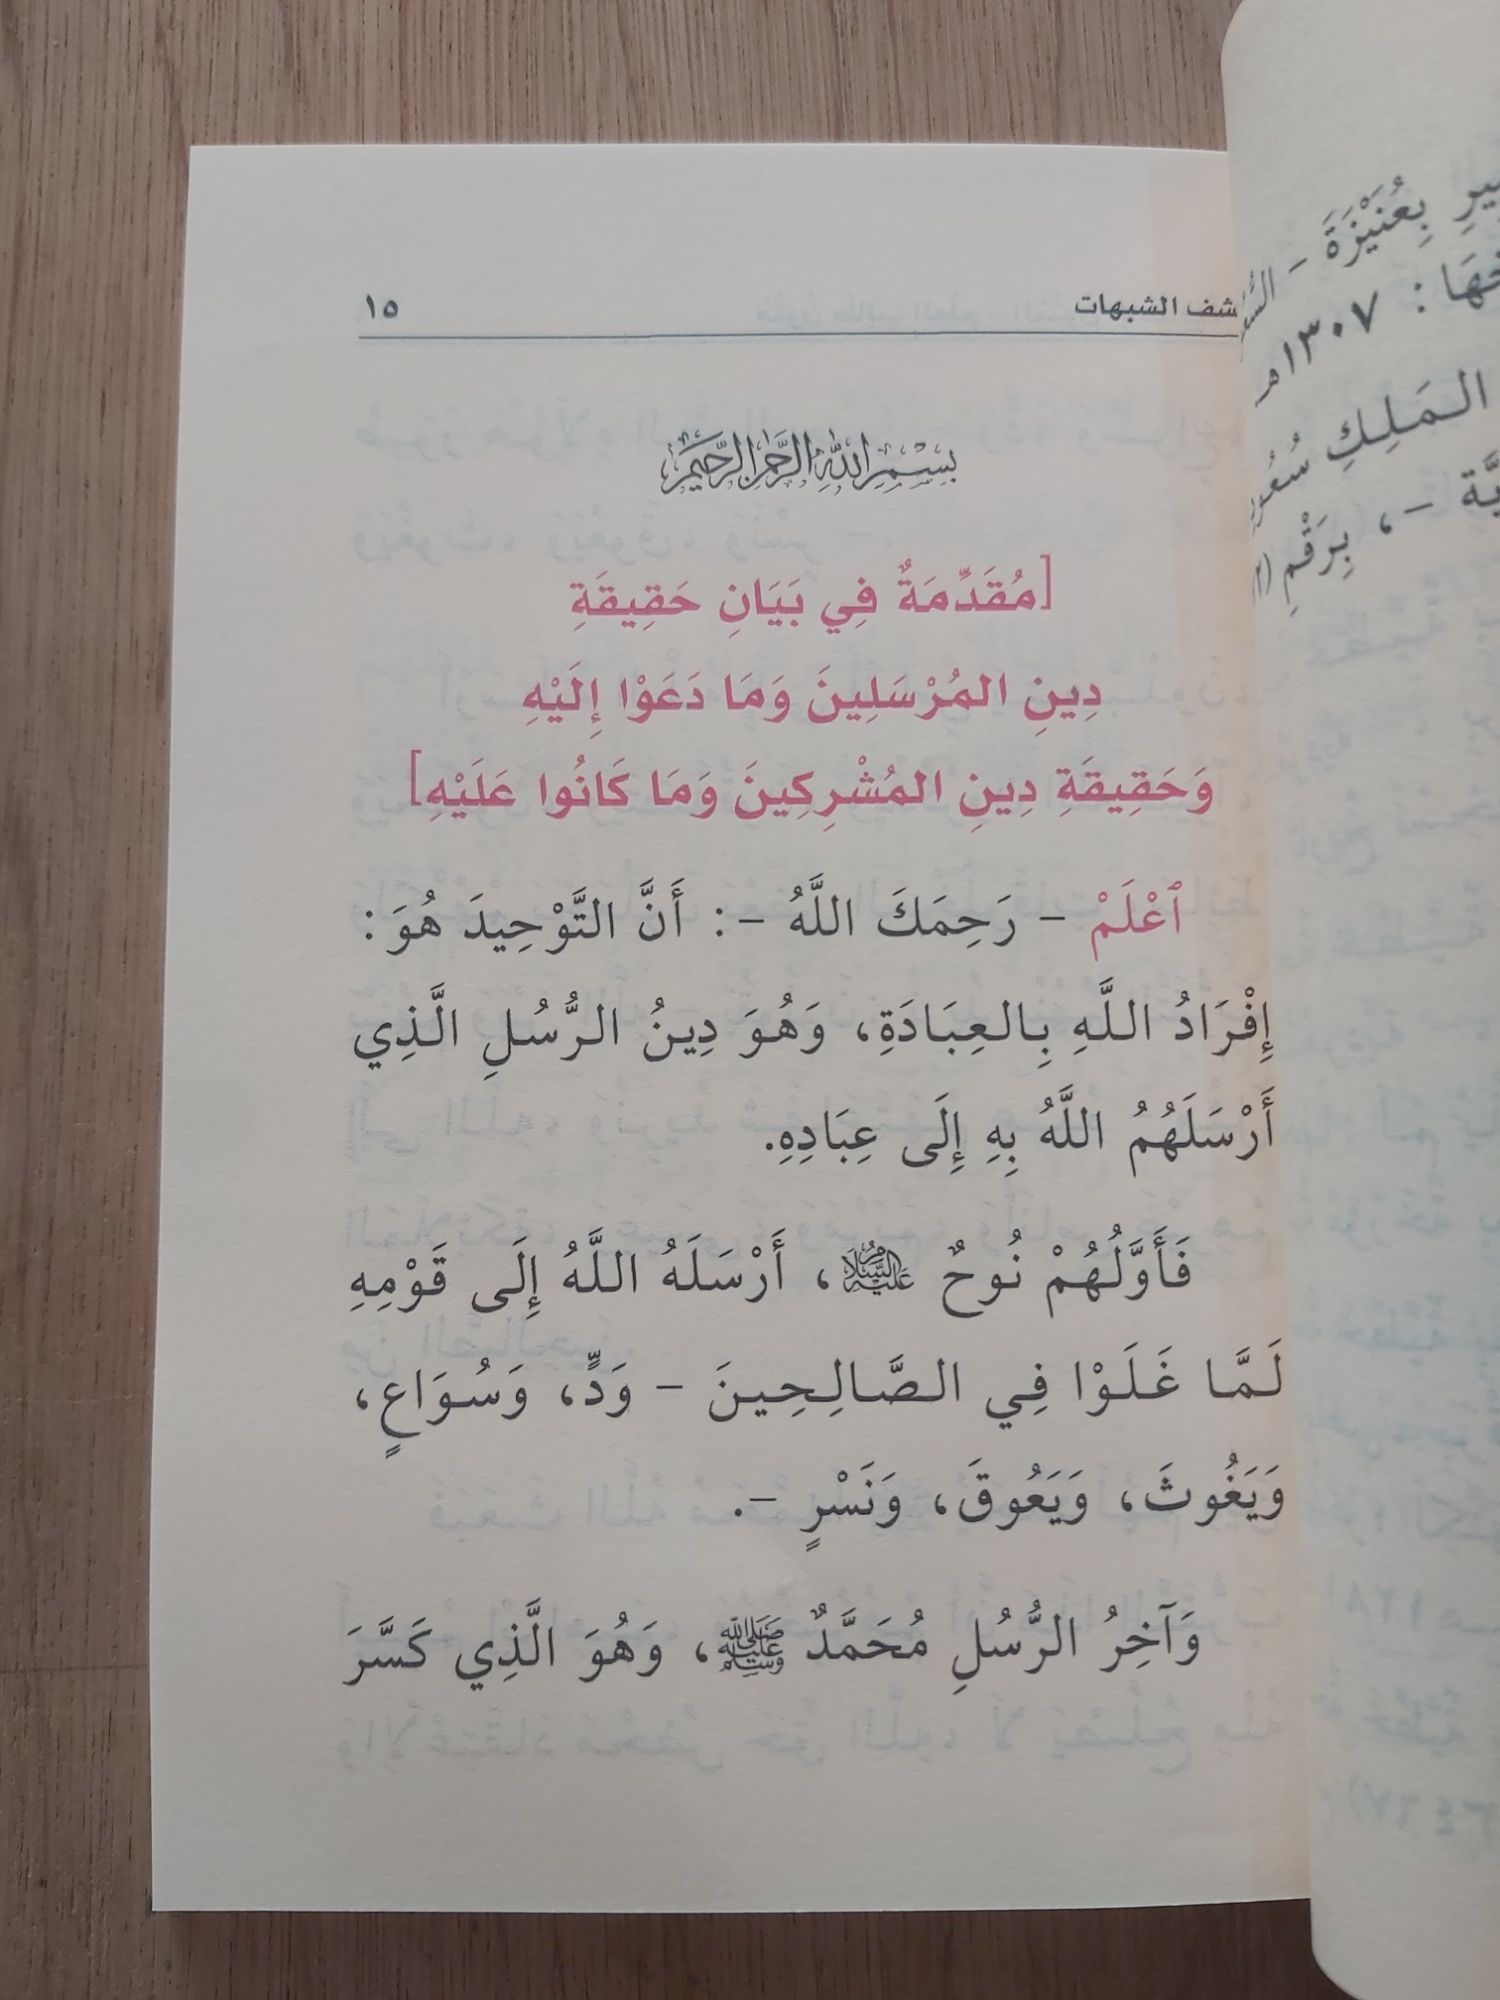 الشبهات ١٥
بِسْمِ اللَّهِ الرَّحْمَنِ الرَّحِيمِ
[مُقَدِّمَةٌ فِي بَيَانِ حَقِيقَةِ
دِينِ المُرْسَلِينَ وَمَا دَعَوْا إِلَيْهِ
وَحَقِيقَةِ دِينِ المُشْرِكِينَ وَمَا كَانُوا عَلَيْهِ]
ٱعْلَمْ - رَحِمَكَ اللَّهُ -: أَنَّ التَّوْحِيدَ هُوَ:
إِفْرَادُ اللَّهِ بِالعِبَادَةِ، وَهُوَ دِينُ الرُّسُلِ الَّذِي
أَرْسَلَهُمُ اللَّهُ بِهِ إِلَى عِبَادِهِ.
فَأَوَّلُهُمْ نُوحٌ عَلَيْهِ السَّلَامُ، أَرْسَلَهُ اللَّهُ إِلَى قَوْمِهِ
لَمَّا غَلَوْا فِي الصَّالِحِينَ - وَدٍّ، وَسُوَاعٍ،
وَيَغُوثَ، وَيَعُوقَ، وَنَسْرٍ -.
وَآخِرُ الرُّسُلِ مُحَمَّدٌ ﷺ، وَهُوَ الَّذِي كَسَّرَ
بِعُنَيْزَةَ -
: ١٣٠٧هـ
المَلِكِ
-، بِرَقْمِ